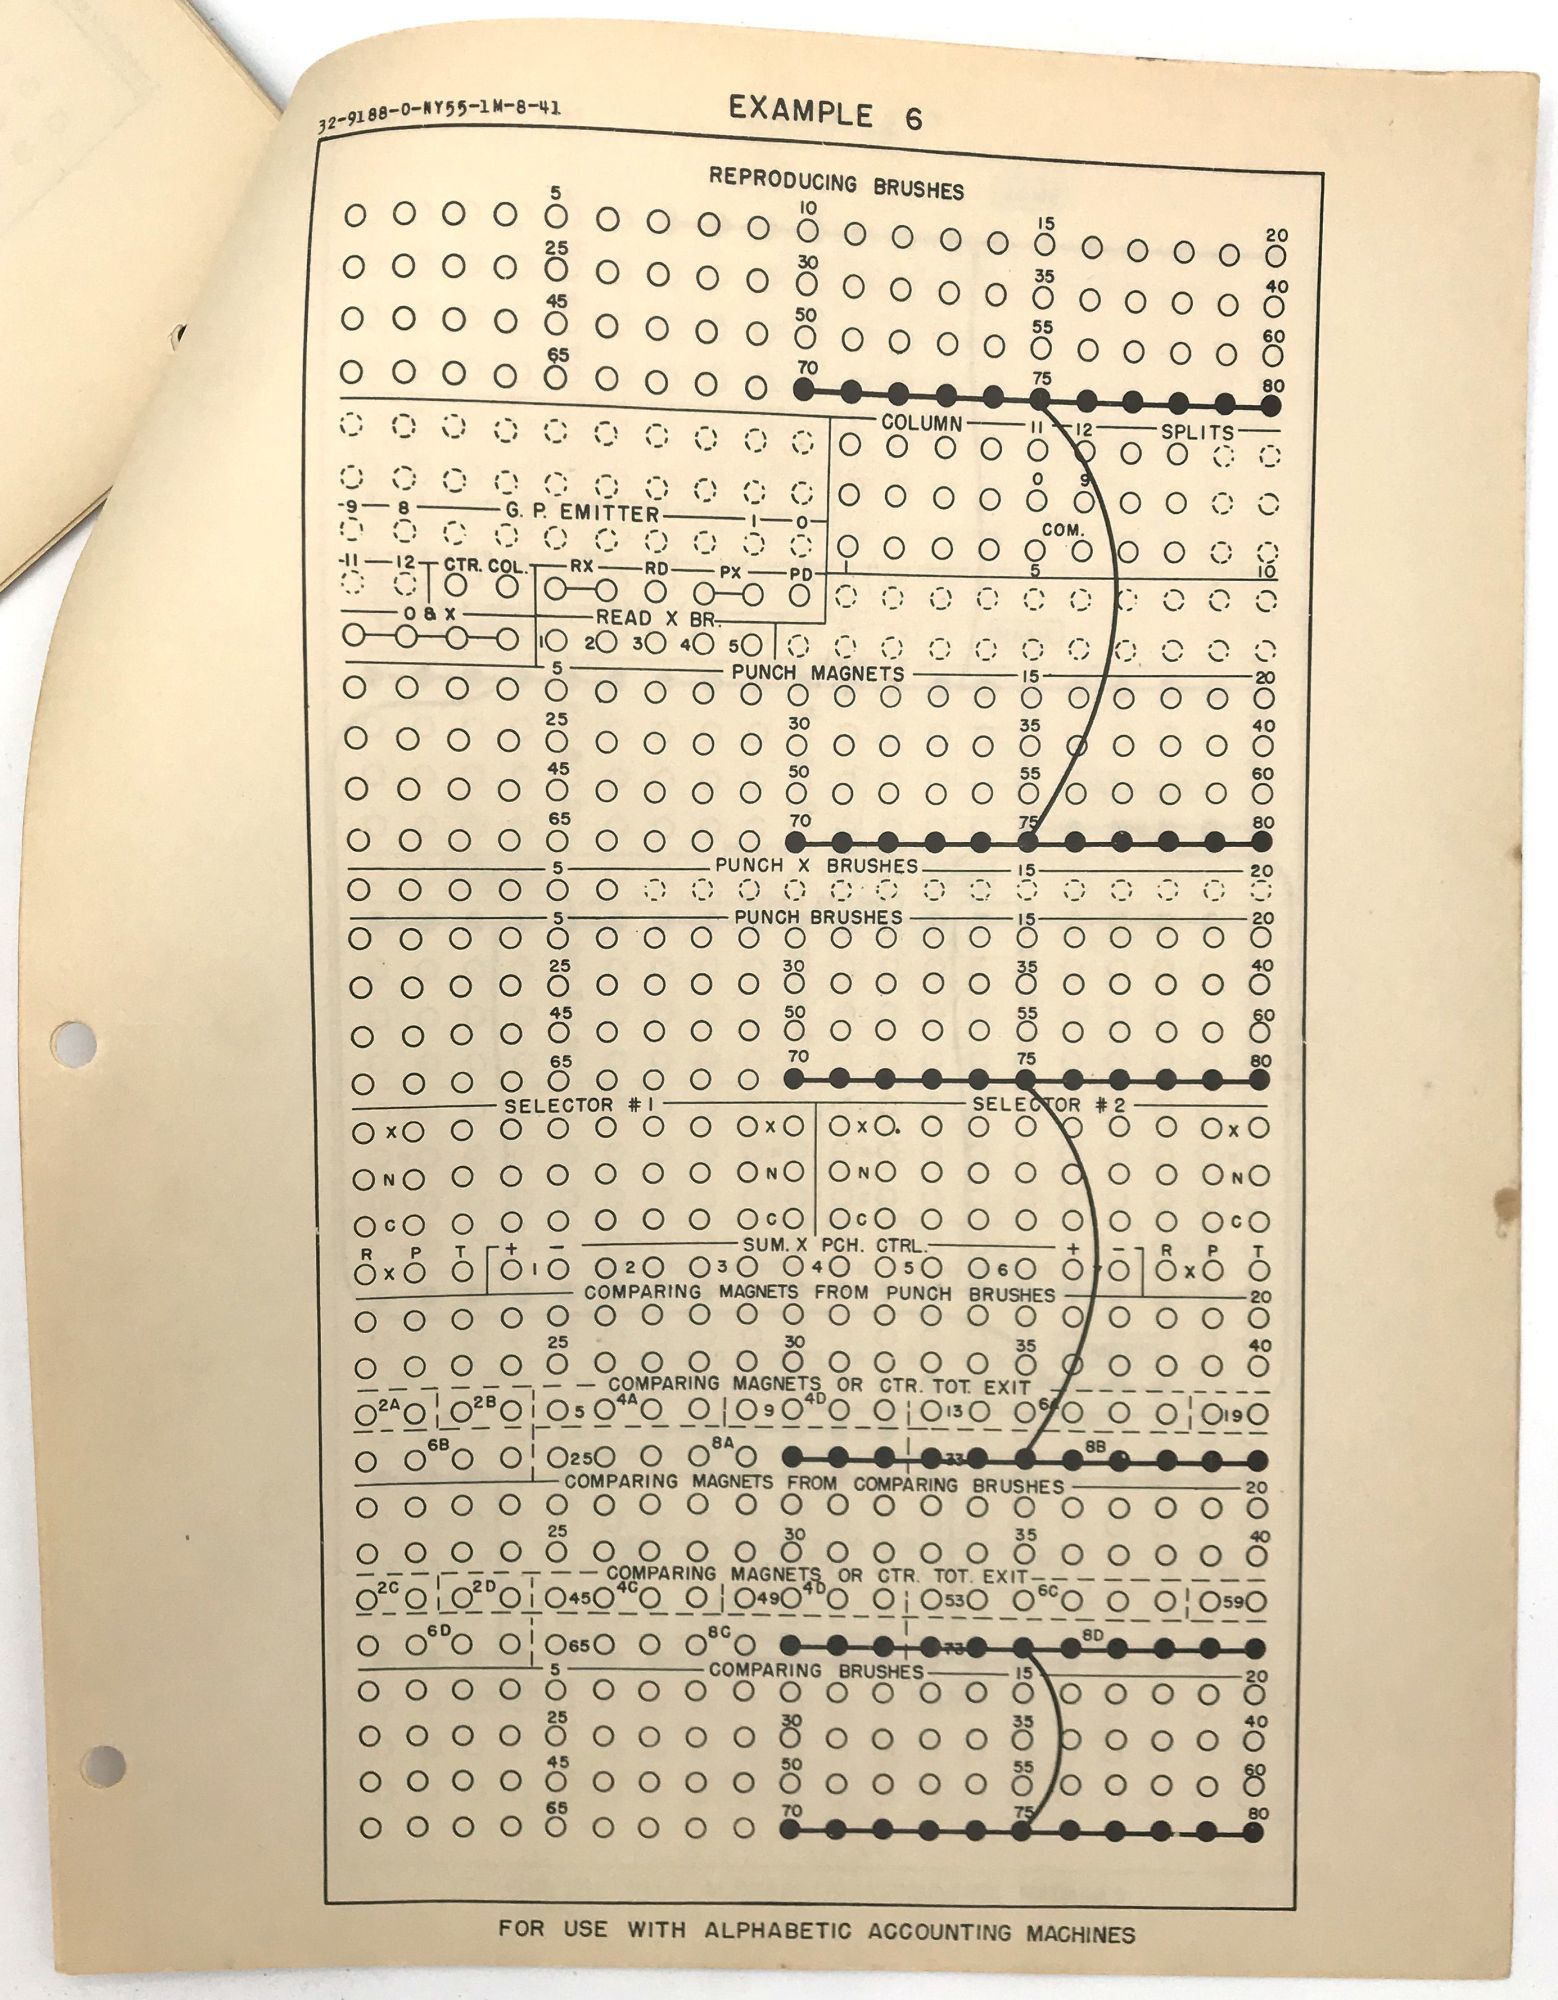 32-9188-0-NY55-1M-8-41
EXAMPLE 6
REPRODUCING BRUSHES
5 10 15 20
25 30 35 40
45 50 55 60
65 70 75 80
COLUMN 11 12 SPLITS
0 9
9 8 G. P. EMITTER 1 0
COM.
11 12 CTR. COL. RX RD PX PD 1 5 10
O & X READ X BR.
1 2 3 4 5
5 PUNCH MAGNETS 15 20
25 30 35 40
45 50 55 60
65 70 75 80
5 PUNCH X BRUSHES 15 20
5 PUNCH BRUSHES 15 20
25 30 35 40
45 50 55 60
65 70 75 80
SELECTOR #1 SELECTOR #2
X X X X
N N N N
C C C C
R P T + - SUM. X PCH. CTRL. + - R P T
X 1 2 3 4 5 6 7 X
COMPARING MAGNETS FROM PUNCH BRUSHES 20
25 30 35 40
COMPARING MAGNETS OR CTR. TOT. EXIT
2A 2B 5 4A 9 4D 13 6A 19
6B 25 8A 33 8B
COMPARING MAGNETS FROM COMPARING BRUSHES 20
25 30 35 40
COMPARING MAGNETS OR CTR. TOT. EXIT
2C 2D 45 4C 49 4D 53 6C 59
6D 65 8C 73 8D
5 COMPARING BRUSHES 15 20
25 30 35 40
45 50 55 60
65 70 75 80
FOR USE WITH ALPHABETIC ACCOUNTING MACHINES